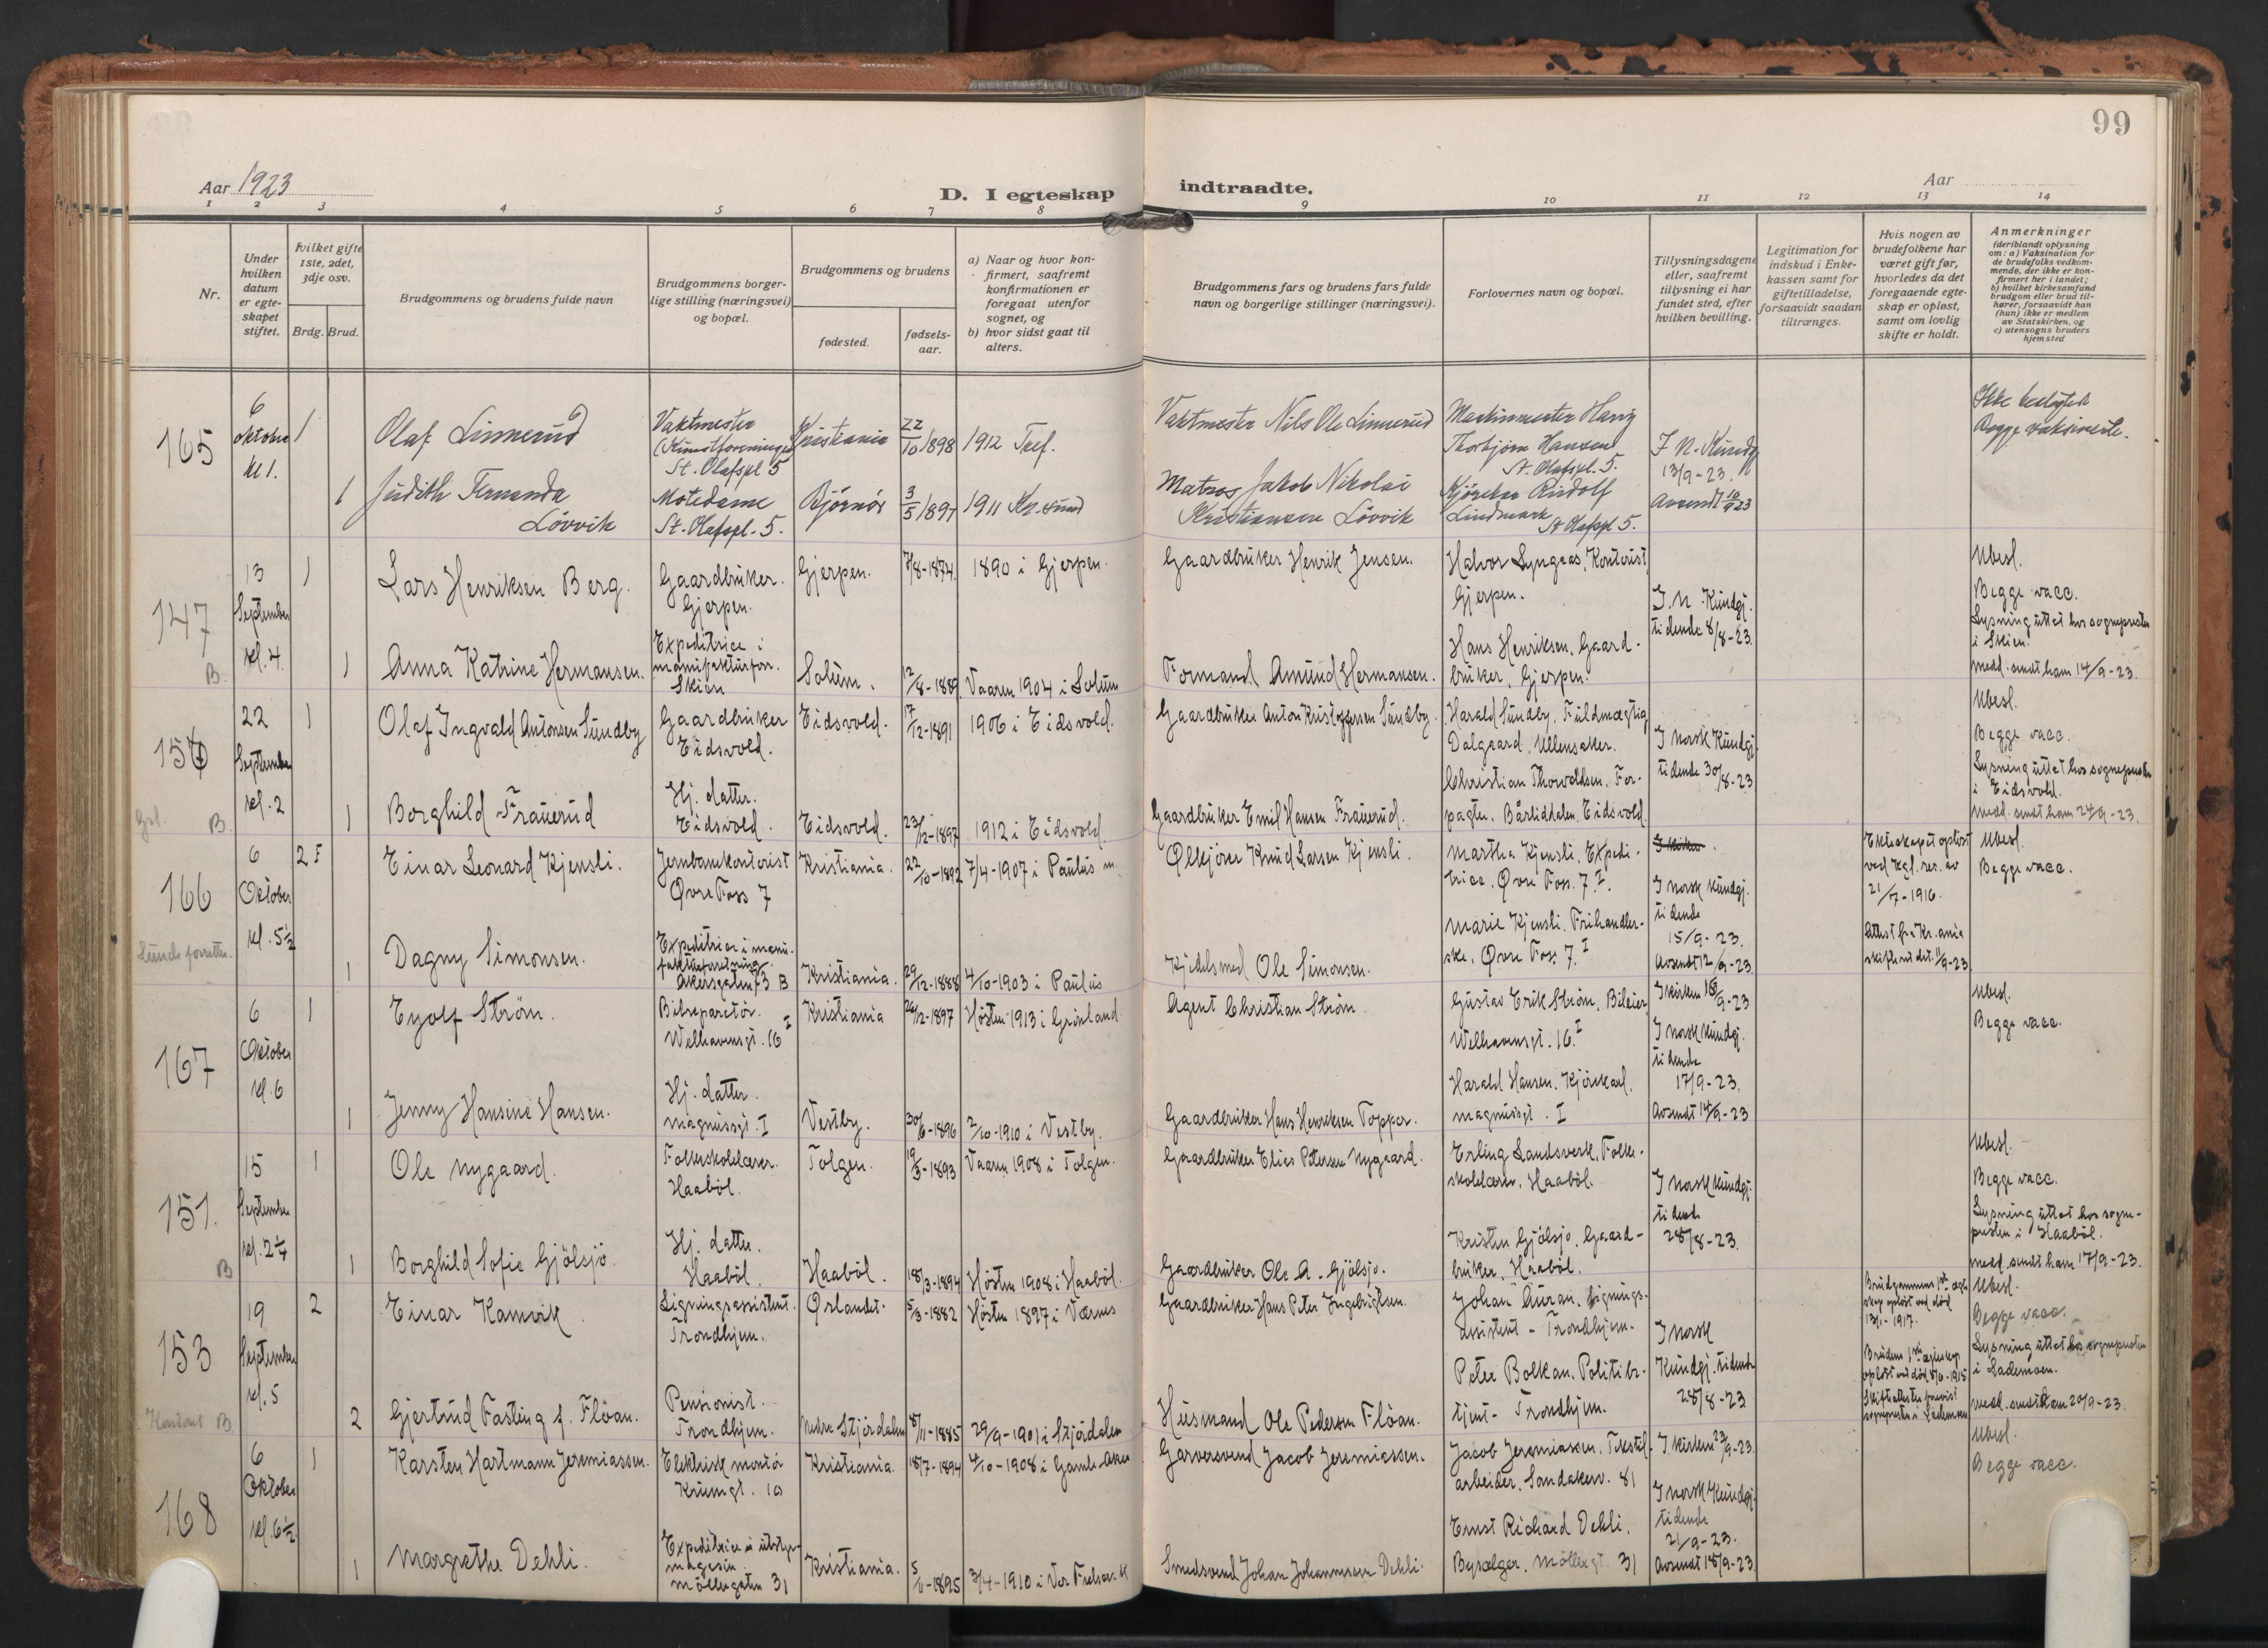 99
Aar 1923
D. I egteskap indtraadte.
Aar
1 2 3 4 5 6 7 8 9 10 11 12 13 14
Nr.
Under hvilken datum er egteskapet stiftet.
Hvilket gifte 1ste, 2det, 3dje osv.
Brdg. Brud.
Brudgommens og brudens fulde navn
Brudgommens borgerlige stilling (næringsvei) og bopæl.
Brudgommens og brudens
fødested.
fødselsaar.
a) Naar og hvor konfirmert, saafremt konfirmationen er foregaat utenfor sognet, og
b) hvor sidst gaat til alters.
Brudgommens fars og brudens fars fulde navn og borgerlige stillinger (næringsvei).
Forlovernes navn og bopæl.
Tillysningsdagene eller, saafremt tillysning ei har fundet sted, efter hvilken bevilling.
Legitimation for indskud i Enkekassen samt for giftetilladelse, forsaavidt saadan tiltrænges.
Hvis nogen av brudefolkene har været gift før, hvorledes da det foregaaende egteskap er opløst, samt om lovlig skifte er holdt.
Anmerkninger
(deriblandt oplysning om: a) Vaksination for de brudefolks vedkommende, der ikke er konfirmert her i landet;
b) hvilket kirkesamfund brudgom eller brud tilhører, forsaavidt han (hun) ikke er medlem av Statskirken, og
c) utensogns bruders hjemsted
165
6 oktober kl 1.
1 Olaf Linnerud
Vaktmester (Kunstforeningen St. Olafspl 5
Kristiania 22/10 1898 1912 Tref.
Vaktmester Nils Ole Linnerud
Maskinmester Harry Thorbjørn Hansen St. Olafspl. 5.
I N. Kundg 13/9-23.
Avsendt 10/9 23
Ikke beslegtet
Begge vaksinerte.
1 Judith Fernanda Lövvik
Motedame St. Olafspl. 5.
Bjørnör 3/5 1897 1911 Kr.sund
Matros Jakob Nikolai Kristiansen Lövvik
Kjørekar Rudolf Lindmark St Olafspl 5.
147
B.
13 September kl. 4.
1 Lars Henriksen Berg.
Gaardbruker. Gjerpen.
Gjerpen. 7/8-1874. 1890 i Gjerpen.
Gaardbruker Henrik Jensen.
Halvor Lyngaas, Kontorist, Gjerpen.
I. N. Kundgj. tidende 8/8-23.
Ubesl.
Begge vacc.
Lysning uttat hos sognepresten i Skien.
medd. sendt ham 14/9-23.
1 Anna Katrine Hermansen.
Expeditrice i manufakturforr. Skien
Solum. 12/8-1889 Vaaren 1904 i Solum
Formand Amund Hermansen.
Hans Henriksen, Gaardbruker, Gjerpen.
156
Gsl. B.
22 September kl. 2
1 Olaf Ingvald Antonsen Sundby
Gaardbruker Eidsvold.
Eidsvold. 17/12-1891 1906 i Eidsvold.
Gaardbruker Anton Kristoffersen Sundby.
Harald Sundby, Fuldmægtig Dalgaard, Ullensaker.
I norsk Kundgj. tidende 30/8-23
Ubesl.
Begge vacc.
Lysning uttat hos sognepresten i Eidsvold.
medd. sendt ham 24/9-23.
1 Borghild Frauerud
Hj. datter. Eidsvold.
Eidsvold. 23/2-1897 1912 i Eidsvold.
Gaardbruker Emil Hansen Frauerud.
Christian Thorvaldsen, Forpagter, Bårliddalen, Eidsvold.
166
Lunde forretter.
6 Oktober kl. 5½
2 F Einar Leonard Kjensli.
Jernbanekontorist Øvre Foss 7
Kristiania. 22/10-1892 7/4-1907 i Paulus m.
Ølkjører Knud Larsen Kjensli.
Martha Kjensli, Expeditrice, Øvre Foss. 7 I.
I kirken.
I norsk Kundgj. tidende 15/9-23.
Avsendt 12/9-23.
Ekteskapet opløst ved kgl. res. av 21/7-1916.
Attest fra Kr.ania skifterett dat. 11/9-23
Ubesl.
Begge vacc.
1 Dagny Simonsen.
Expeditrice i manufakturforretning Akersgaten 73 B
Kristiania. 29/12-1888 4/10-1903 i Paulus
Kjedelsmed Ole Simonsen.
Marie Kjensli, Frihandlerske, Øvre Foss 7. I
167
6 Oktober kl. 6
1 Eyolf Strøm.
Bilreparatør. Welhavensgt. 16 I
Kristiania 26/2-1897 Høsten 1913 i Grønland
Agent Christian Strøm.
Gustav Erik Strøm, Bileier, Welhavensgt. 16. I
I kirken 16/9-23
I norsk Kundgj. tidende 17/9-23.
Avsendt 14/9-23
Ubesl.
Begge vacc.
1 Jenny Hansine Hansen.
Hj. datter. Magnusgt. I
Vestby. 30/6-1896 2/10-1910 i Vestby.
Gaardbruker Hans Henriksen Topper.
Harald Hansen, Kjørekarl, Magnusgt. I
151.
B
15 September kl. 2¼
1 Ole Nygaard.
Folkeskolelærer. Haabøl.
Tolgen. 19/3-1893 Vaaren 1908 i Tolgen.
Gaardbruker Elias Petersen Nygaard.
Erling Landsverk, Folkeskolelærer, Haabøl.
I norsk Kundgj. tidende 28/8-23.
Ubesl.
Begge vacc.
Lysning uttat hos sognepresten i Haabøl.
medd. sendt ham 17/9-23.
1 Borghild Sofie Gjølsjø
Hj. datter. Haabøl.
Haabøl. 18/3-1894 Høsten 1908 i Haabøl.
Gaardbruker Ole A. Gjølsjø.
Kristen Gjølsjø, Gaardbruker, Haabøl.
153
Kontoret B
19 September kl. 5
2 Einar Kamvik
Ligningsassistent. Trondhjem.
Ørlandet. 5/3-1882 Høsten 1897 i Værnes
Gaardbruker Hans Peter Ingebrigtsen.
Johan Auran, Ligningsassistent - Trondhjem.
I norsk Kundgj. tidende 28/8-23
Brudgommens 1ste egteskap opløst ved død 13/1-1917.
Brudens 1ste egteskap opløst ved død 8/6-1915
Ubesl.
Begge vacc.
Lysning uttat hos sognepresten i Lademoen.
medd. sendt ham 20/9-23.
2 Gjertrud Fasting f. Flöan.
Pensionist. Trondhjem.
Nedre Stjördalen 8/11-1885 29/9-1901 i Stjördalen
Husmand Ole Pedersen Flöan.
Peter Bolkan, Politibetjent - Trondhjem.
168
6 Oktober kl. 6½
1 Karsten Hartmann Jeremiassen.
Elektrisk montør Krumgt. 10
Kristiania. 18/7-1894 4/10-1908 i Gamle Aker
Garversvend Jacob Jeremiassen.
Jacob Jeremiassen, Tekstilarbeider, Sandakerv. 81
I kirken 23/9-23.
I norsk Kundgj. tidende 21/9-23.
Avsendt 18/9-23.
Ubesl.
Begge vacc.
1 Margrethe Dehli.
Expeditrice i utstyrmagasin Møllergaten 31
Kristiania. 5/11-1895 3/4-1910 i Vor Frelser. K
Smedsvend Johan Johannessen Dehli.
Ernst Richard Dehli, Byselger, Møllergt. 31